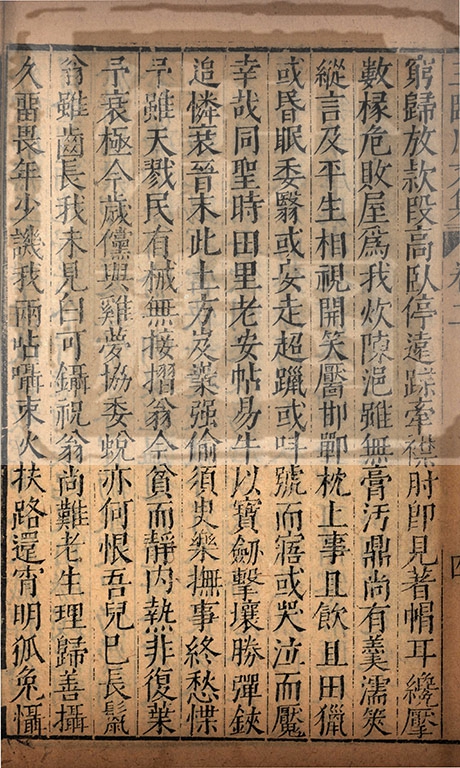 窮歸放款段高臥停遠蹤牽襟肘即見著帽耳纔擪
數椽危敗屋爲我炊陳浥雖無膏汚鼎尚有羹濡筴
縱言及平生相視開笑靨邯鄲枕上事且飲且田獵
或昏眠委翳或妄走超躐或叫號而寤或哭泣而魘
幸哉同聖時田里老安帖易牛以寶劒擊壤勝彈鋏
追憐衰晉末此土方岌嶪强偷須臾樂撫事終愁惵
予雖天戮民有械無接摺翁今貧而靜內熱非復葉
予衰極今歲儻與雞夢協委蛻亦何恨吾兒已長鬣
翁雖齒長我未見白可鑷祝翁尚難老生理歸善攝
久畱畏年少譏我兩呫囁束火扶路還宵明狐兔懾